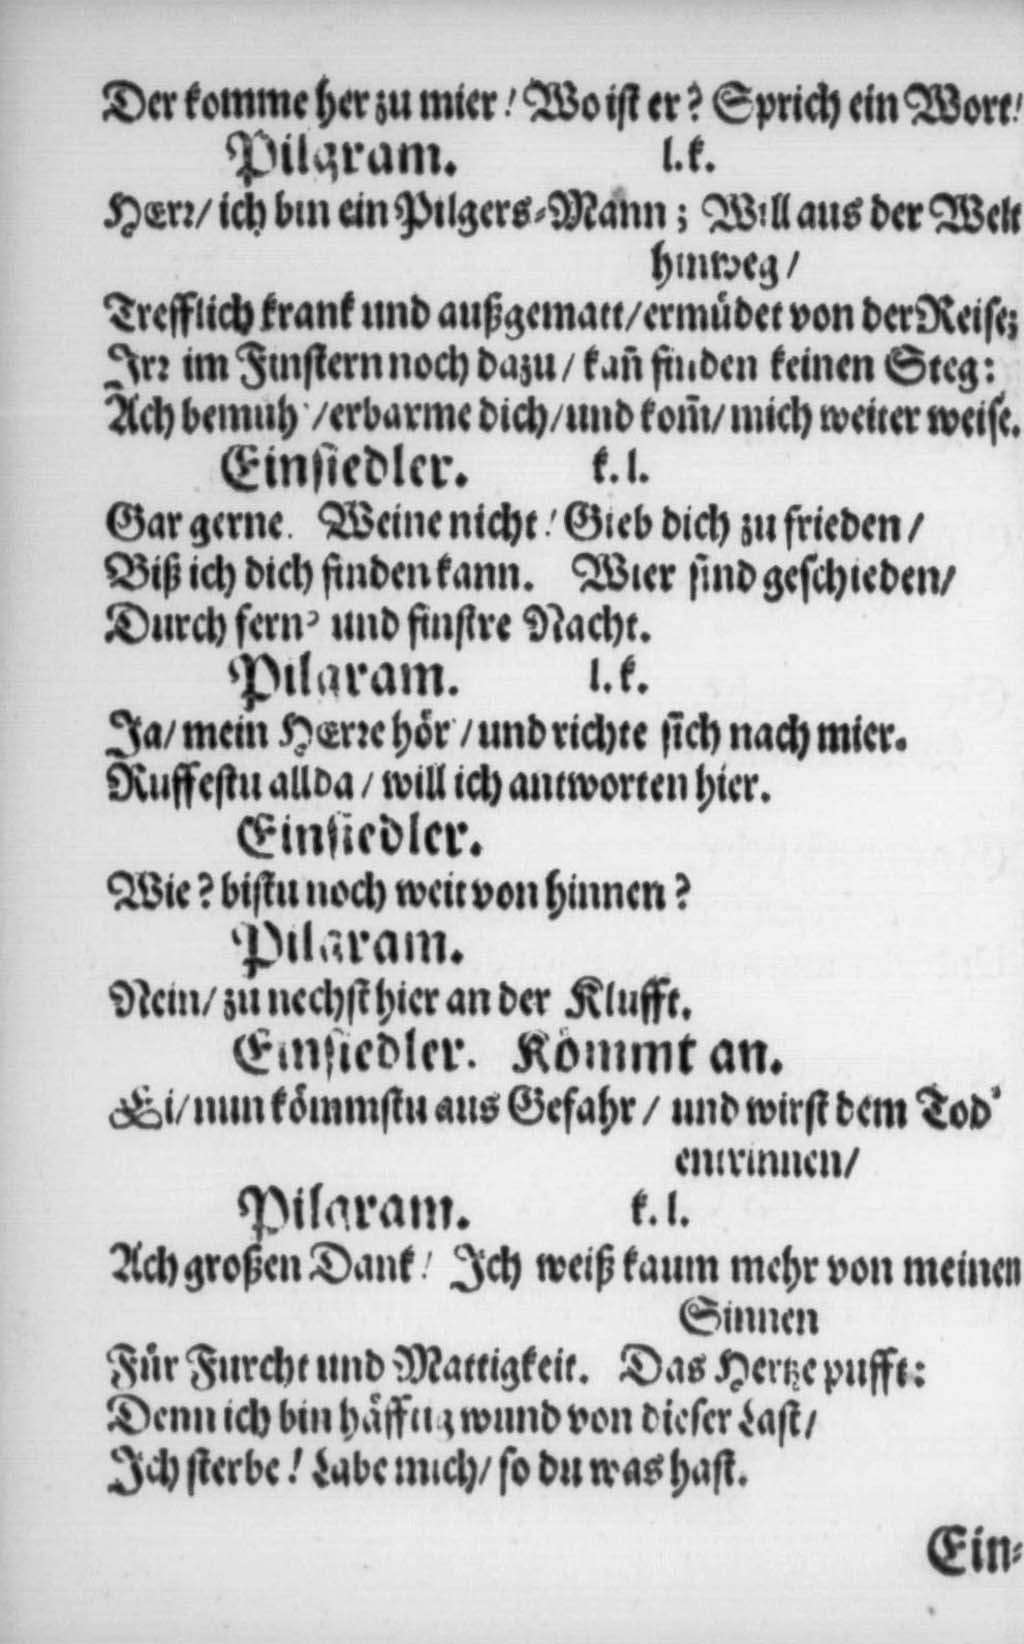 Der komme her zu mier! Wo ist er? Sprich ein Wort!
Pilgram. l.k.
HErr/ ich bin ein Pilgers-Mann; Will aus der Welt
hinweg/
Trefflich krank und außgematt/ermüdet von der Reise;
Irr im Finstern noch dazu/ kañ finden keinen Steg:
Ach bemüh'/erbarme dich/und kom̃/mich weiter weise.
Einsiedler. k.l.
Gar gerne. Weine nicht! Gieb dich zu frieden/
Biß ich dich finden kann. Wier sind geschieden/
Durch fern' und finstre Nacht.
Pilgram. l.k.
Ja/ mein HErre hör'/und richte sich nach mier.
Ruffestu allda/ will ich antworten hier.
Einsiedler.
Wie? bistu noch weit von hinnen?
Pilgram.
Nein/ zu nechst hier an der Klufft.
Einsiedler. Kömmt an.
Ei/nun kömmstu aus Gefahr/ und wirst dem Tod'
entrinnen/
Pilgram. k.l.
Ach großen Dank! Ich weiß kaum mehr von meinen
Sinnen
Für Furcht und Mattigkeit. Das Hertze pufft:
Denn ich bin häfftig wund von dieser Last/
Ich sterbe! Labe mich/ so du was hast.
Ein-